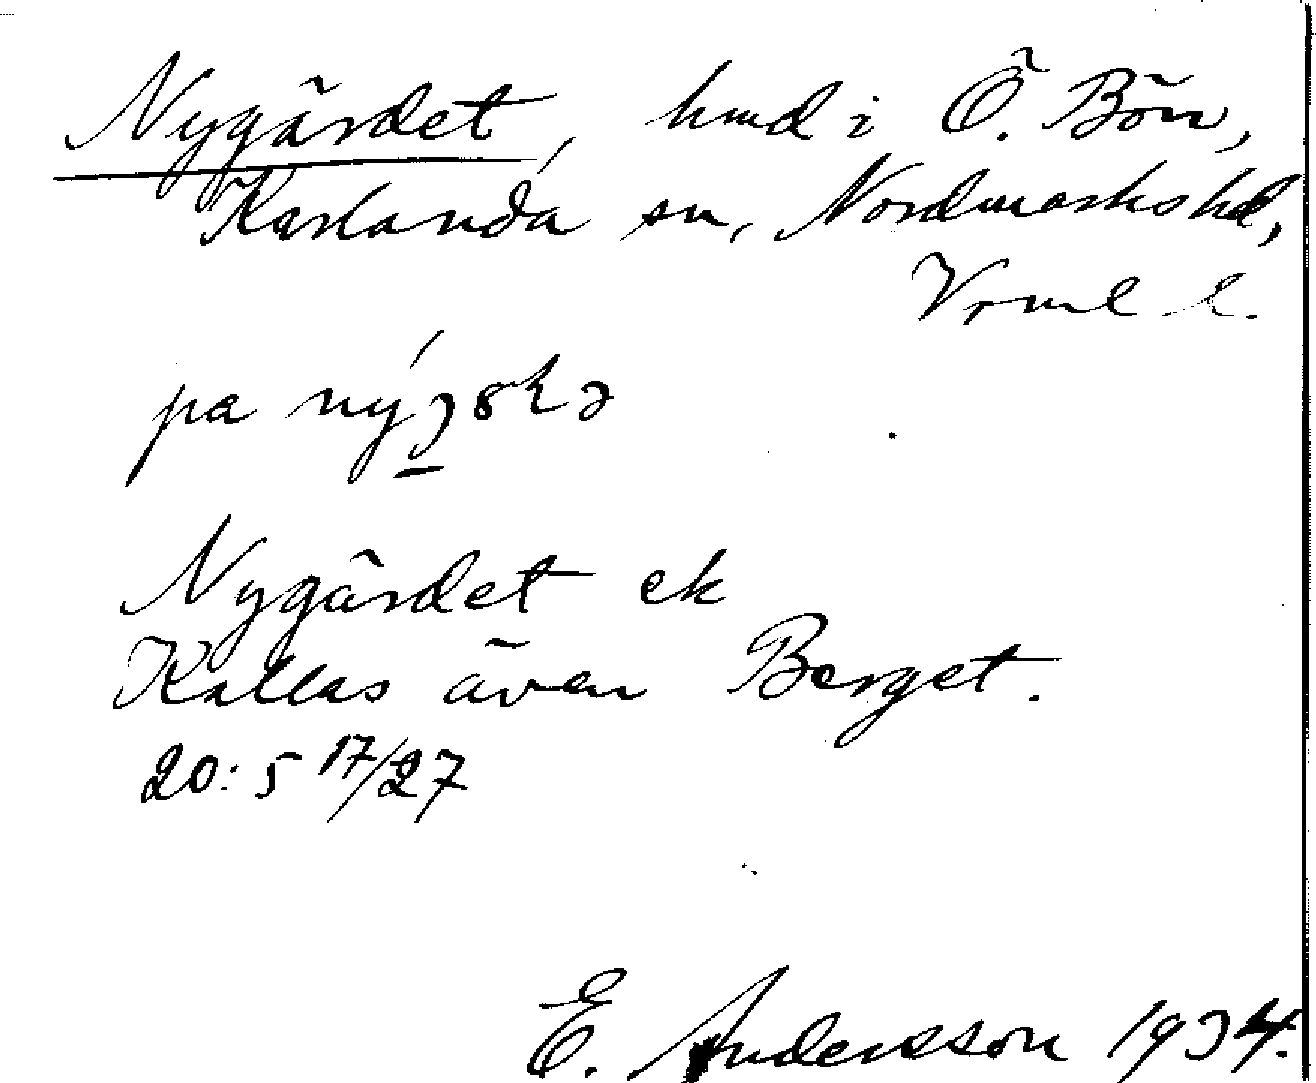 Nygärdet, hmd i Ö. Bön,
Karlanda sn, Nordmarks hd,
Vrml l.
pa
Nygärdet ek
Kallas även Berget.
20:5 17/27
E. Andersson 1934.